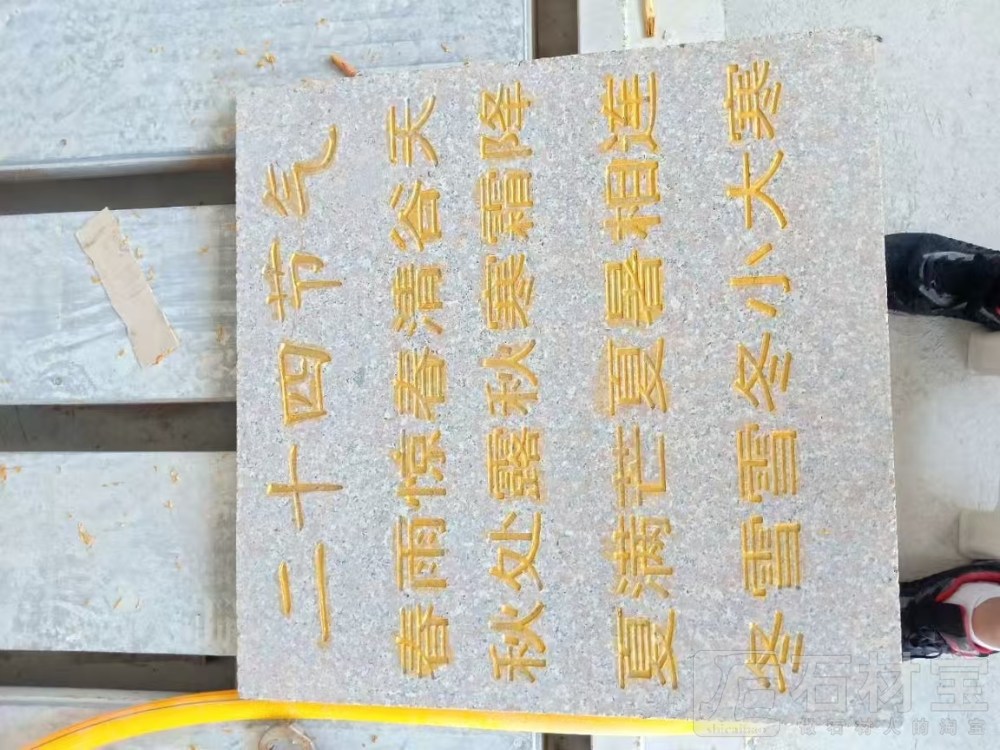 二十四节气
春雨惊春清谷天
秋处露秋寒霜降
夏满芒夏暑相连
冬雪雪冬小大寒
石材宝
shicaibao